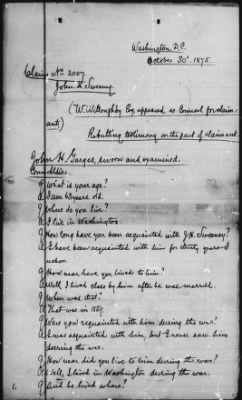 Washington D.C.
October 30th 1875.
Claim No 2007
John H Sweeney
(W. Willoughby Esq appeared as Counsel for claim-
ant)
Rebutting testimony on the part of claimant
John H. Garges, sworn and examined.
Q What is your age?
A I am years old.
Q Where do you live?
A I live in Washington.
Q How long have you been acquainted with J.H. Sweeney?
A I have been acquainted with him for thirty years &
Q How near have you lived to him?
A Well, I lived close by him after he was married.
Q When was that?
A That was in
Q Were you acquainted with him during the war?
A I was acquainted with him, but I never saw him
during the war.
Q How near did you live to him during the war?
A Well, I lived in Washington during the war.
Q And he lived where?